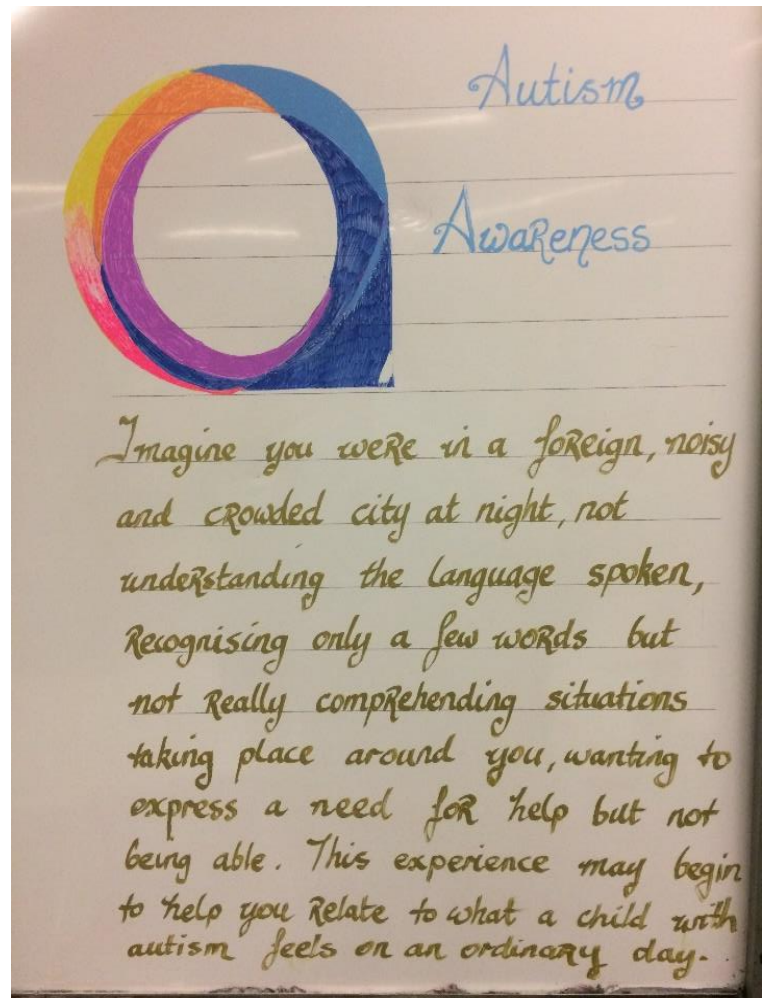 Autism
Awareness
Imagine you were in a foreign, noisy
and crowded city at night, not
understanding the language spoken,
Recognising only a few words but
not Really comprehending situations
taking place around you, wanting to
express a need for help but not
being able. This experience may begin
to help you Relate to what a child with
autism feels on an ordinary day.